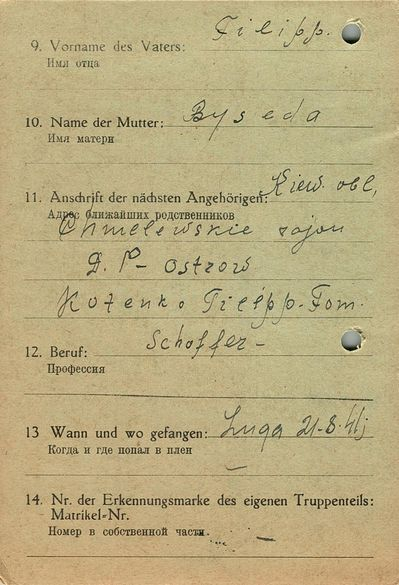 9. Vorname des Vaters: Filipp.
Имя отца
10. Name der Mutter: Byseda
Имя матери
11. Anschrift der nächsten Angehörigen: Kiew. obl,
Адрес ближайших родственников
Chmelewskie rajon
D. P- Ostrow
Kotenko Filipp-Fom.
12. Beruf: Schoffer-
Профессия
13 Wann und wo gefangen: Luga 21-8.41j
Когда и где попал в плен
14. Nr. der Erkennungsmarke des eigenen Truppenteils:
Matrikel-Nr.
Номер в собственной части.